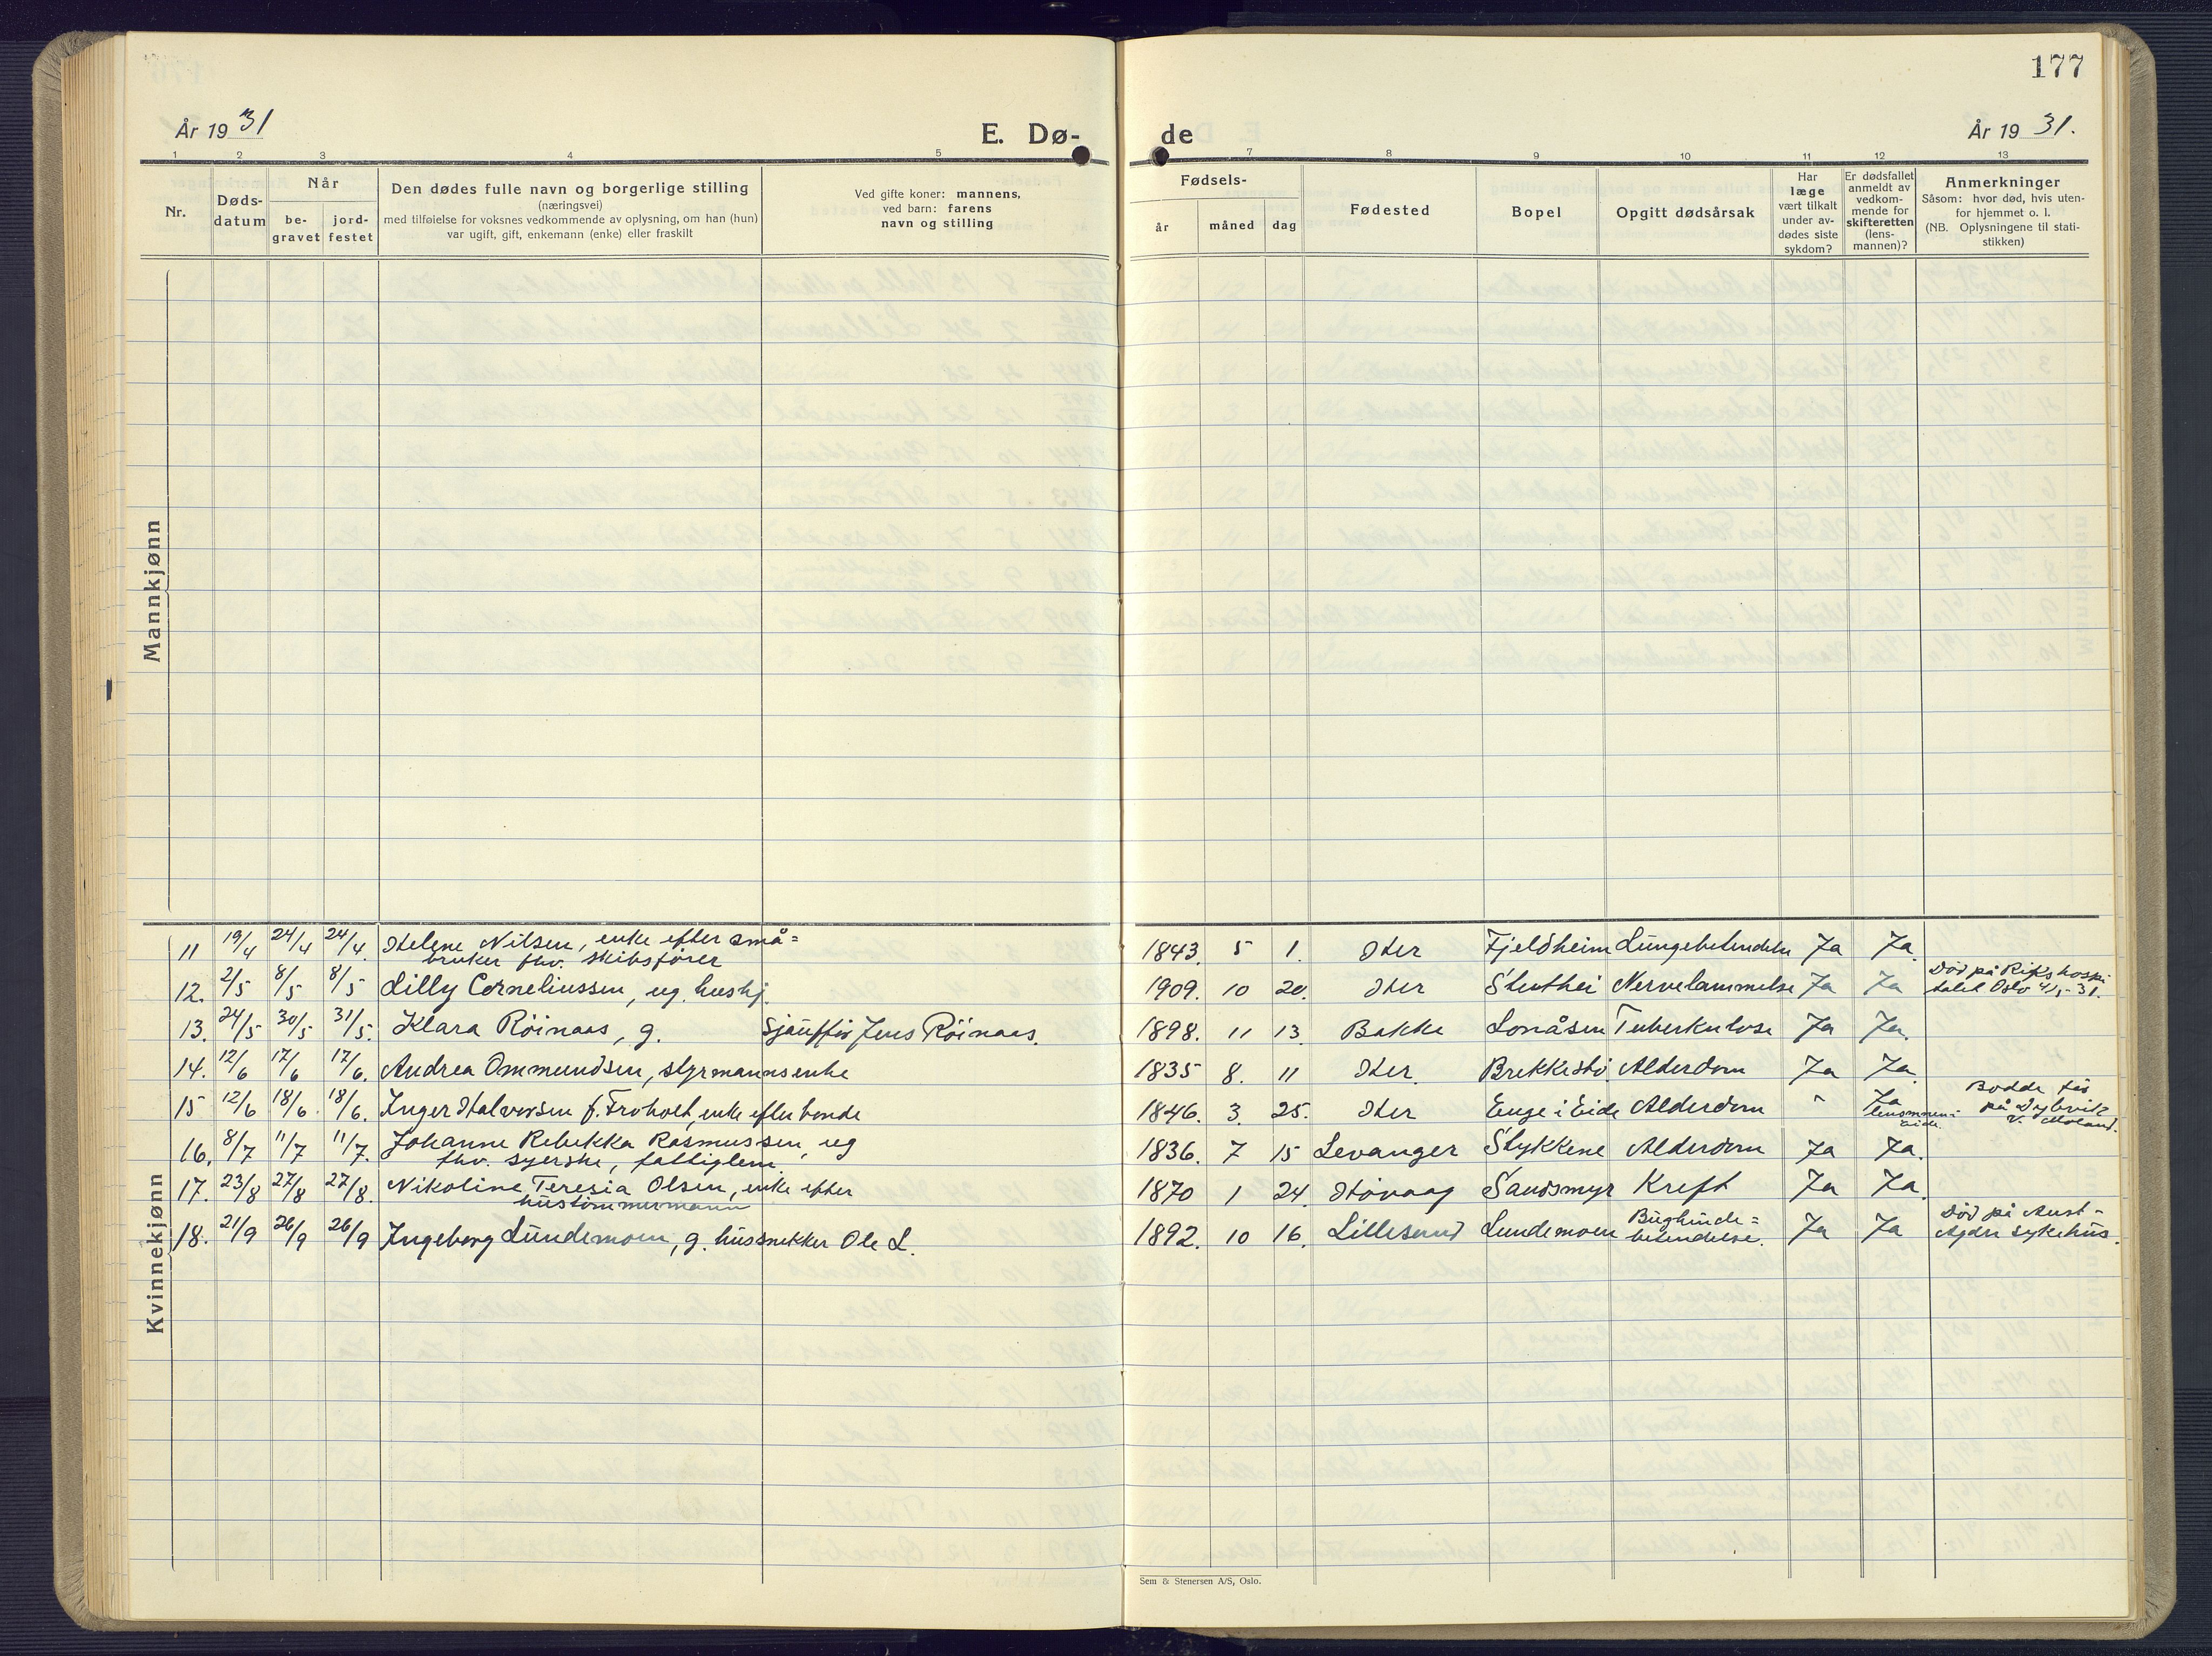 177
År 1931
E. Dø-
de
År 1931.
1 2 3 4 5 7 8 9 10 11 12 13
Nr.
Døds-
datum
Når
be-
gravet
jord-
festet
Den dødes fulle navn og borgerlige stilling
(næringsvei)
med tilføielse for voksnes vedkommende av oplysning, om han (hun)
var ugift, gift, enkemann (enke) eller fraskilt
Ved gifte koner: mannens,
ved barn: farens
navn og stilling
Fødsels-
år måned dag
Fødested
Bopel
Opgitt dødsårsak
Har
læge
vært tilkalt
under av-
dødes siste
sykdom?
Er dødsfallet
anmeldt av
vedkom-
mende for
skifteretten
(lens-
mannen)?
Anmerkninger
Såsom: hvor død, hvis uten-
for hjemmet o. l.
(NB. Oplysningene til stati-
stikken)
Mannkjønn
Kvinnekjønn
11 19/4 24/4 24/4. Helene Nilsen, enke efter små=
bruker fhv. skibsfører
1843. 5 1. Her Fjeldheim Lungebetendelse Ja Ja.
12. 2/5 8/5 8/5 Lilly Corneliussen, ug. hushj.
1909. 10 20. Her Stuthei Nervelammelse Ja Ja
Død på Rikshospi
talet Oslo - 31.
13. 24/5 30/5 31/5. Klara Röinaas, g. Jens Röinaas.
1898. 11 13. Bakke Lonåsen Tuberkulose Ja Ja.
14. 12/6 17/6 17/6. Andrea Ommundsen, styrmannsenke
1835 8. 11 Her. Brekkestö Alderdom Ja Ja.
15 12/6 18/6. 18/6. Inger Halvorsen f. Froholt, enke efter bonde
1846. 3. 25. Her Enge i Eide Alderdom " Ja
lensmannen i
Eide.
Bodde før
på
v. Moland.
16. 8/7 11/7 11/7. Johanne Rebekka Rasmussen, ug
fhv. syerske, fattiglem.
1836. 7 15 Levanger Stykkene Alderdom Ja Ja.
17. 23/8 27/8 27/8. Nikoline Teresia Olsen, enke efter
hustömmermann
1870 1 24. Hövaag Sandsmyr Kreft Ja Ja.
18. 21/9 26/9 26/9 Ingeborg Lundemoen, g. hussnekker Ole L.
1892. 10 16. Lillesand Lundemoen Bughinde=
betendelse. Ja Ja
Død på Aust-
Agder sykehus.
Sem & Stenersen A/S, Oslo.